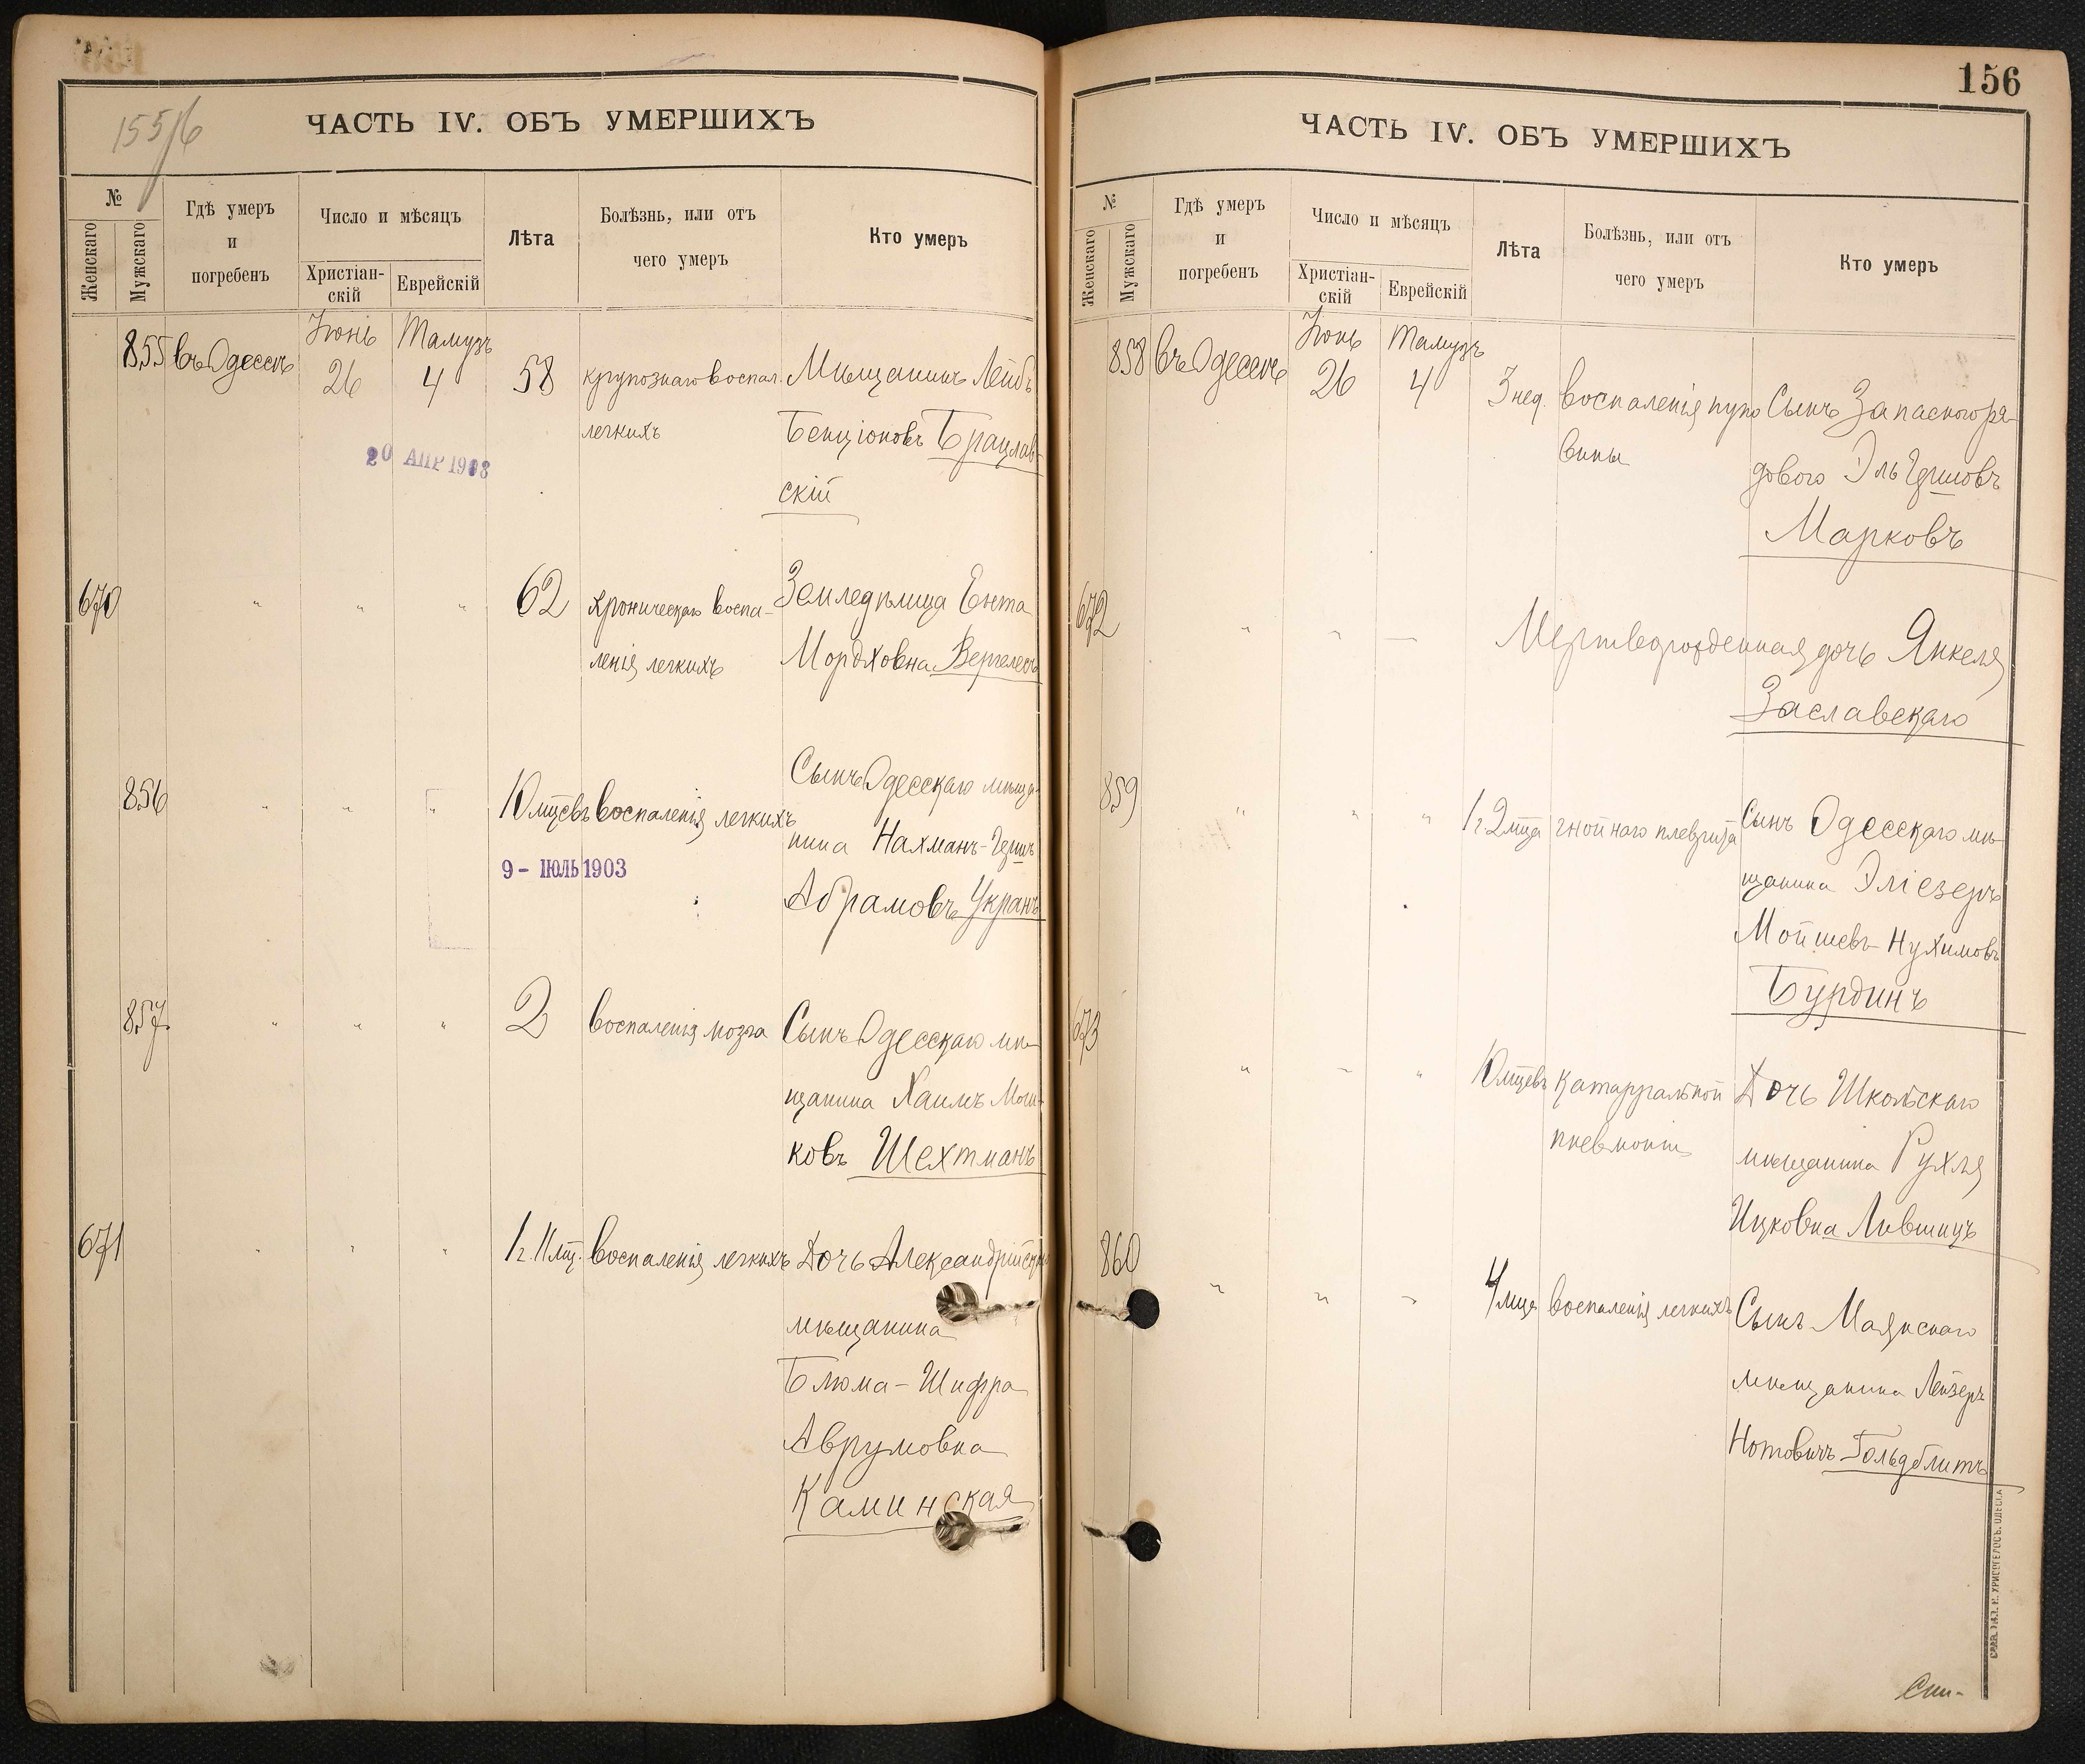 155/6
ЧАСТЬ IV. ОБЪ УМЕРШИХЪ
№
Женскаго
Мужскаго
Гдѣ умеръ
и
погребенъ
Число и мѣсяцъ
Христіан-
скій
Еврейскій
Лѣта
Болѣзнь, или отъ
чего умеръ
Кто умеръ
Іюнь Тамузъ
855 въ Одессѣ 26 4 58 крупознаго воспал. Мѣщанинъ Лейбъ
легкихъ Бенціоновъ Брацлав-
скій
20 АПР 1903
670 " " " 62 хроническаго воспа- Земледѣлица Ента
ленія легкихъ Мордховна Вергелесъ
856 " " " 10 мцевъ воспаленія легкихъ Сынъ Одесскаго мѣща-
нина Нахманъ-Гершъ
9 - ІЮЛЬ 1903
Абрамовъ Укранъ
857 " " " 2 воспаленія мозга Сынъ Одесскаго мѣ-
щанина Хаимъ Мош-
ковъ Шехтманъ
671 " " " 1 г. 11 мц. воспаленія легкихъ Дочь Александрійскаго
мѣщанина
Блюма-Шифра
Аврумовна
Каминская
156
ЧАСТЬ IV. ОБЪ УМЕРШИХЪ
№
Женскаго
Мужскаго
Гдѣ умеръ
и
погребенъ
Число и мѣсяцъ
Христіан-
скій
Еврейскій
Лѣта
Болѣзнь, или отъ
чего умеръ
Кто умеръ
Іюнь Тамузъ
858 въ Одессѣ 26 4 3 нед. воспаленія пупо Сынъ Запаснаго ря-
вины дового Эль Гершовъ
Марковъ
672 " " — Мертворожденная дочь Янкеля
Заславскаго
859 " " " 1 г 2 мца гнойнаго плеврита Сынъ Одесскаго мѣ-
щанина Эліезеръ
Мойшевъ-Нухимовъ
Бурдинъ
673 " " " 10 мцевъ катарральной Дочь Школьскаго
пневмоніи мѣщанина Рухля
Ицковна Лившицъ
860 " " " 4 мца воспаленія легкихъ Сынъ Маякскаго
мѣщанина Лейзеръ
Нотовичъ Гольдблитъ